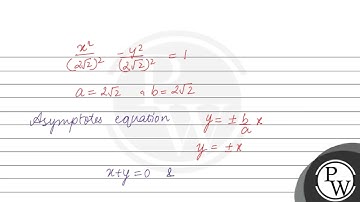 x²/(2√2)² - y²/(2√2)² = 1
a = 2√2 , b = 2√2
Asymptotes equation y = ± b/a x
y = ± x
x+y=0 &
PW